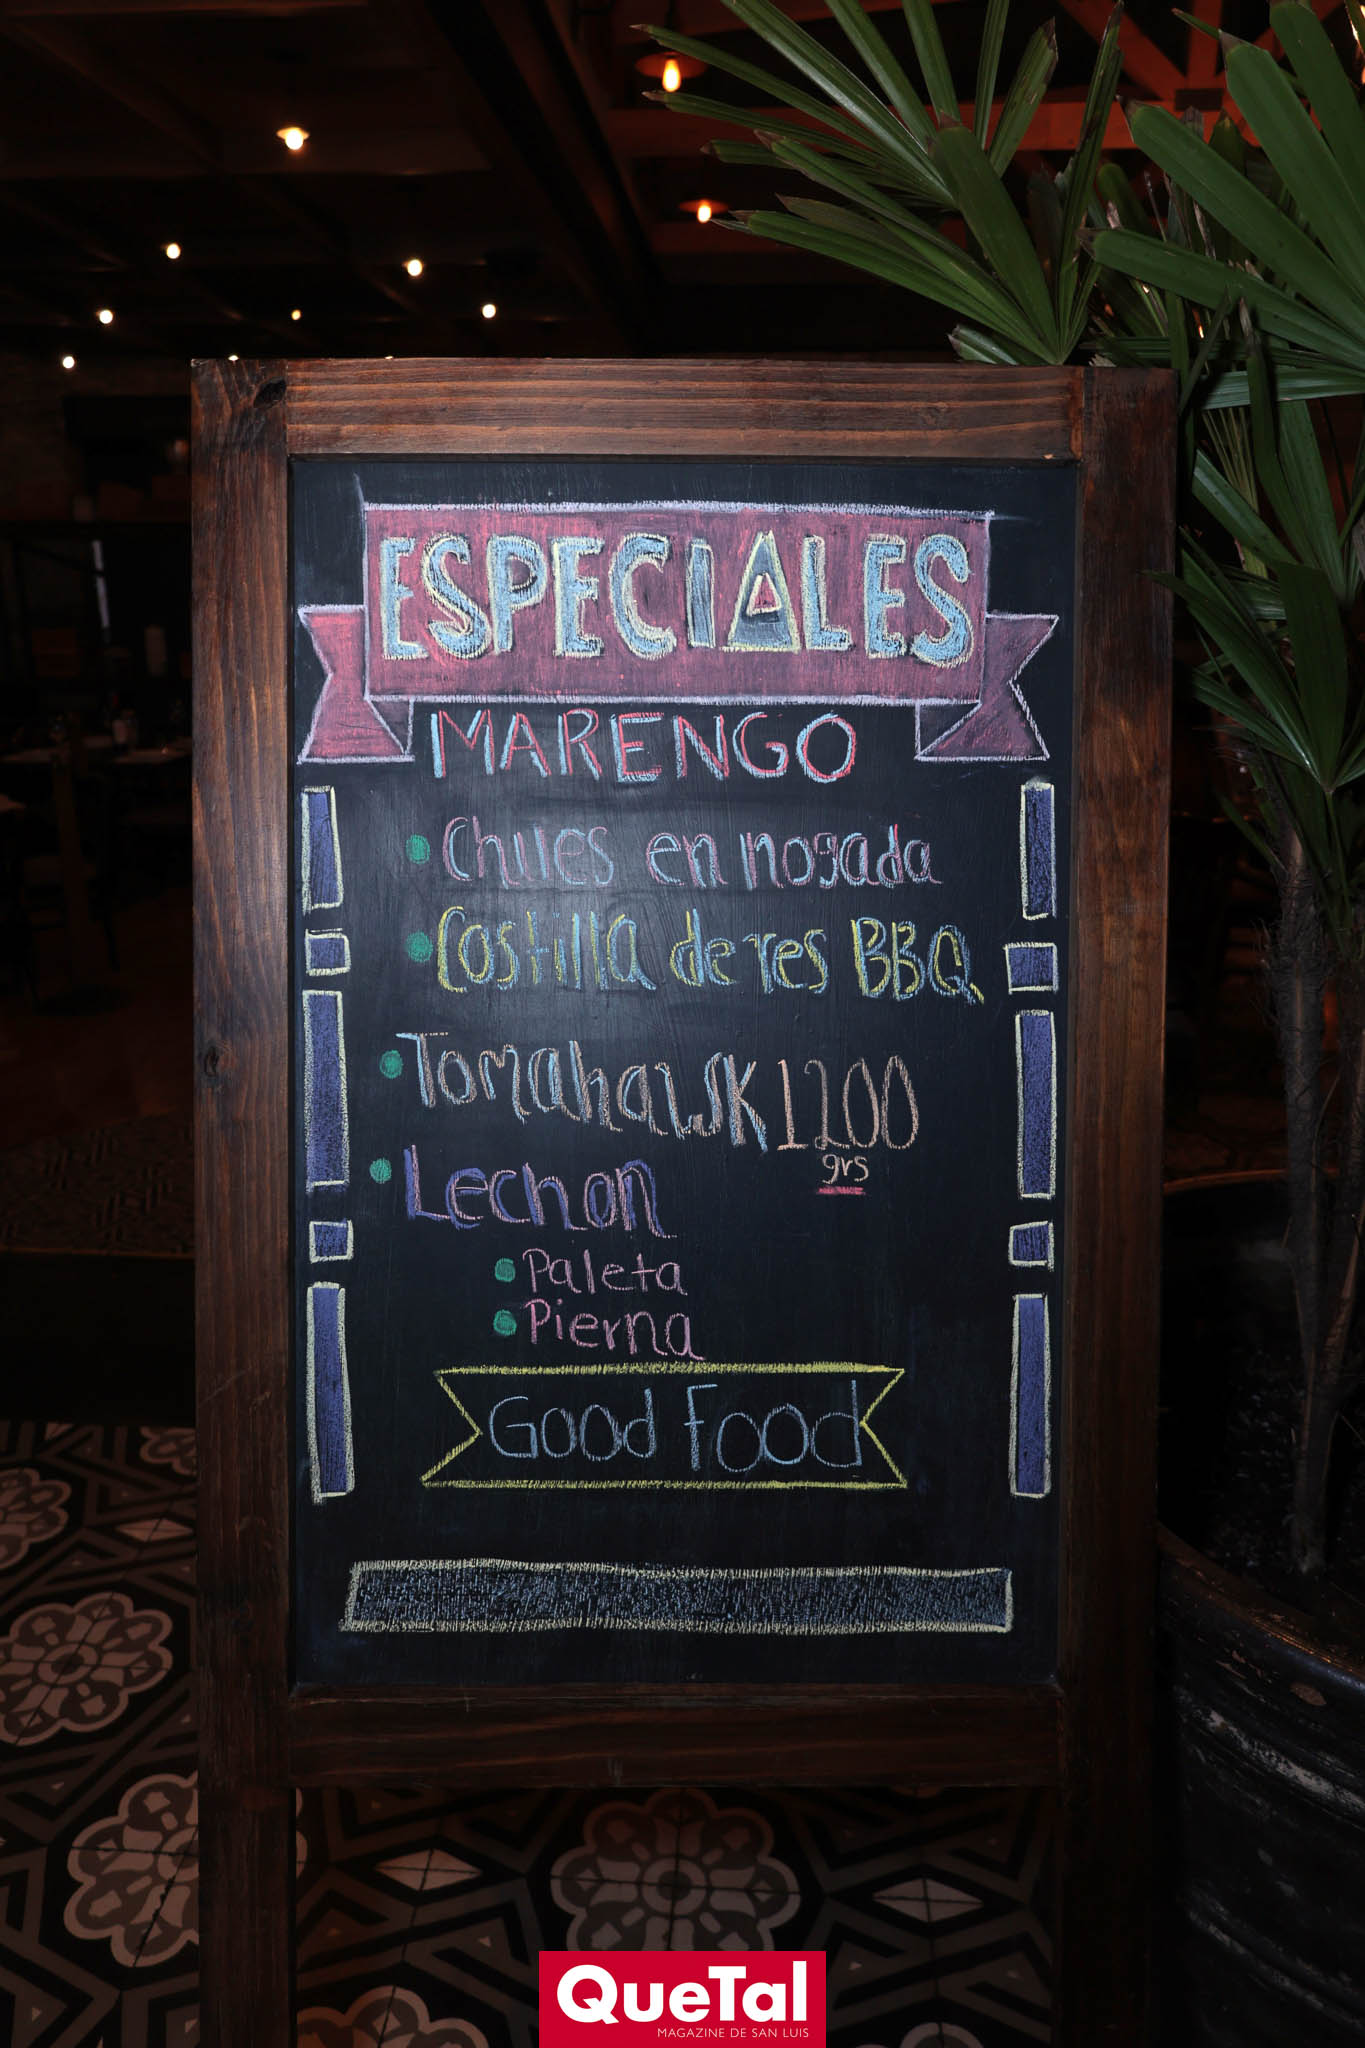 ESPECIALES
MARENGO
Chiles en nogada
Costilla de res BBQ
Tomahawk 1200
grs
Lechon
Paleta
Pierna
Good Food
QueTal
MAGAZINE DE SAN LUIS